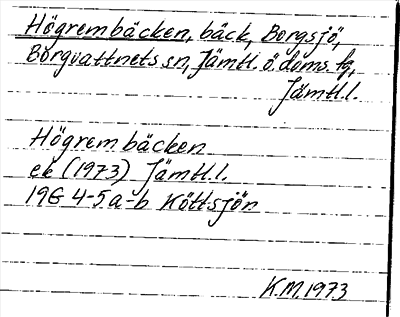 Högrembäcken, bäck, Borgsjö,
Borgvattnets sn, Jämtl. ö. doms. fg,
Jämtl.l.
Högrembäcken
ek (1973) Jämtl.l.
19G 4-5 a-b Köttsjön
K.M. 1973